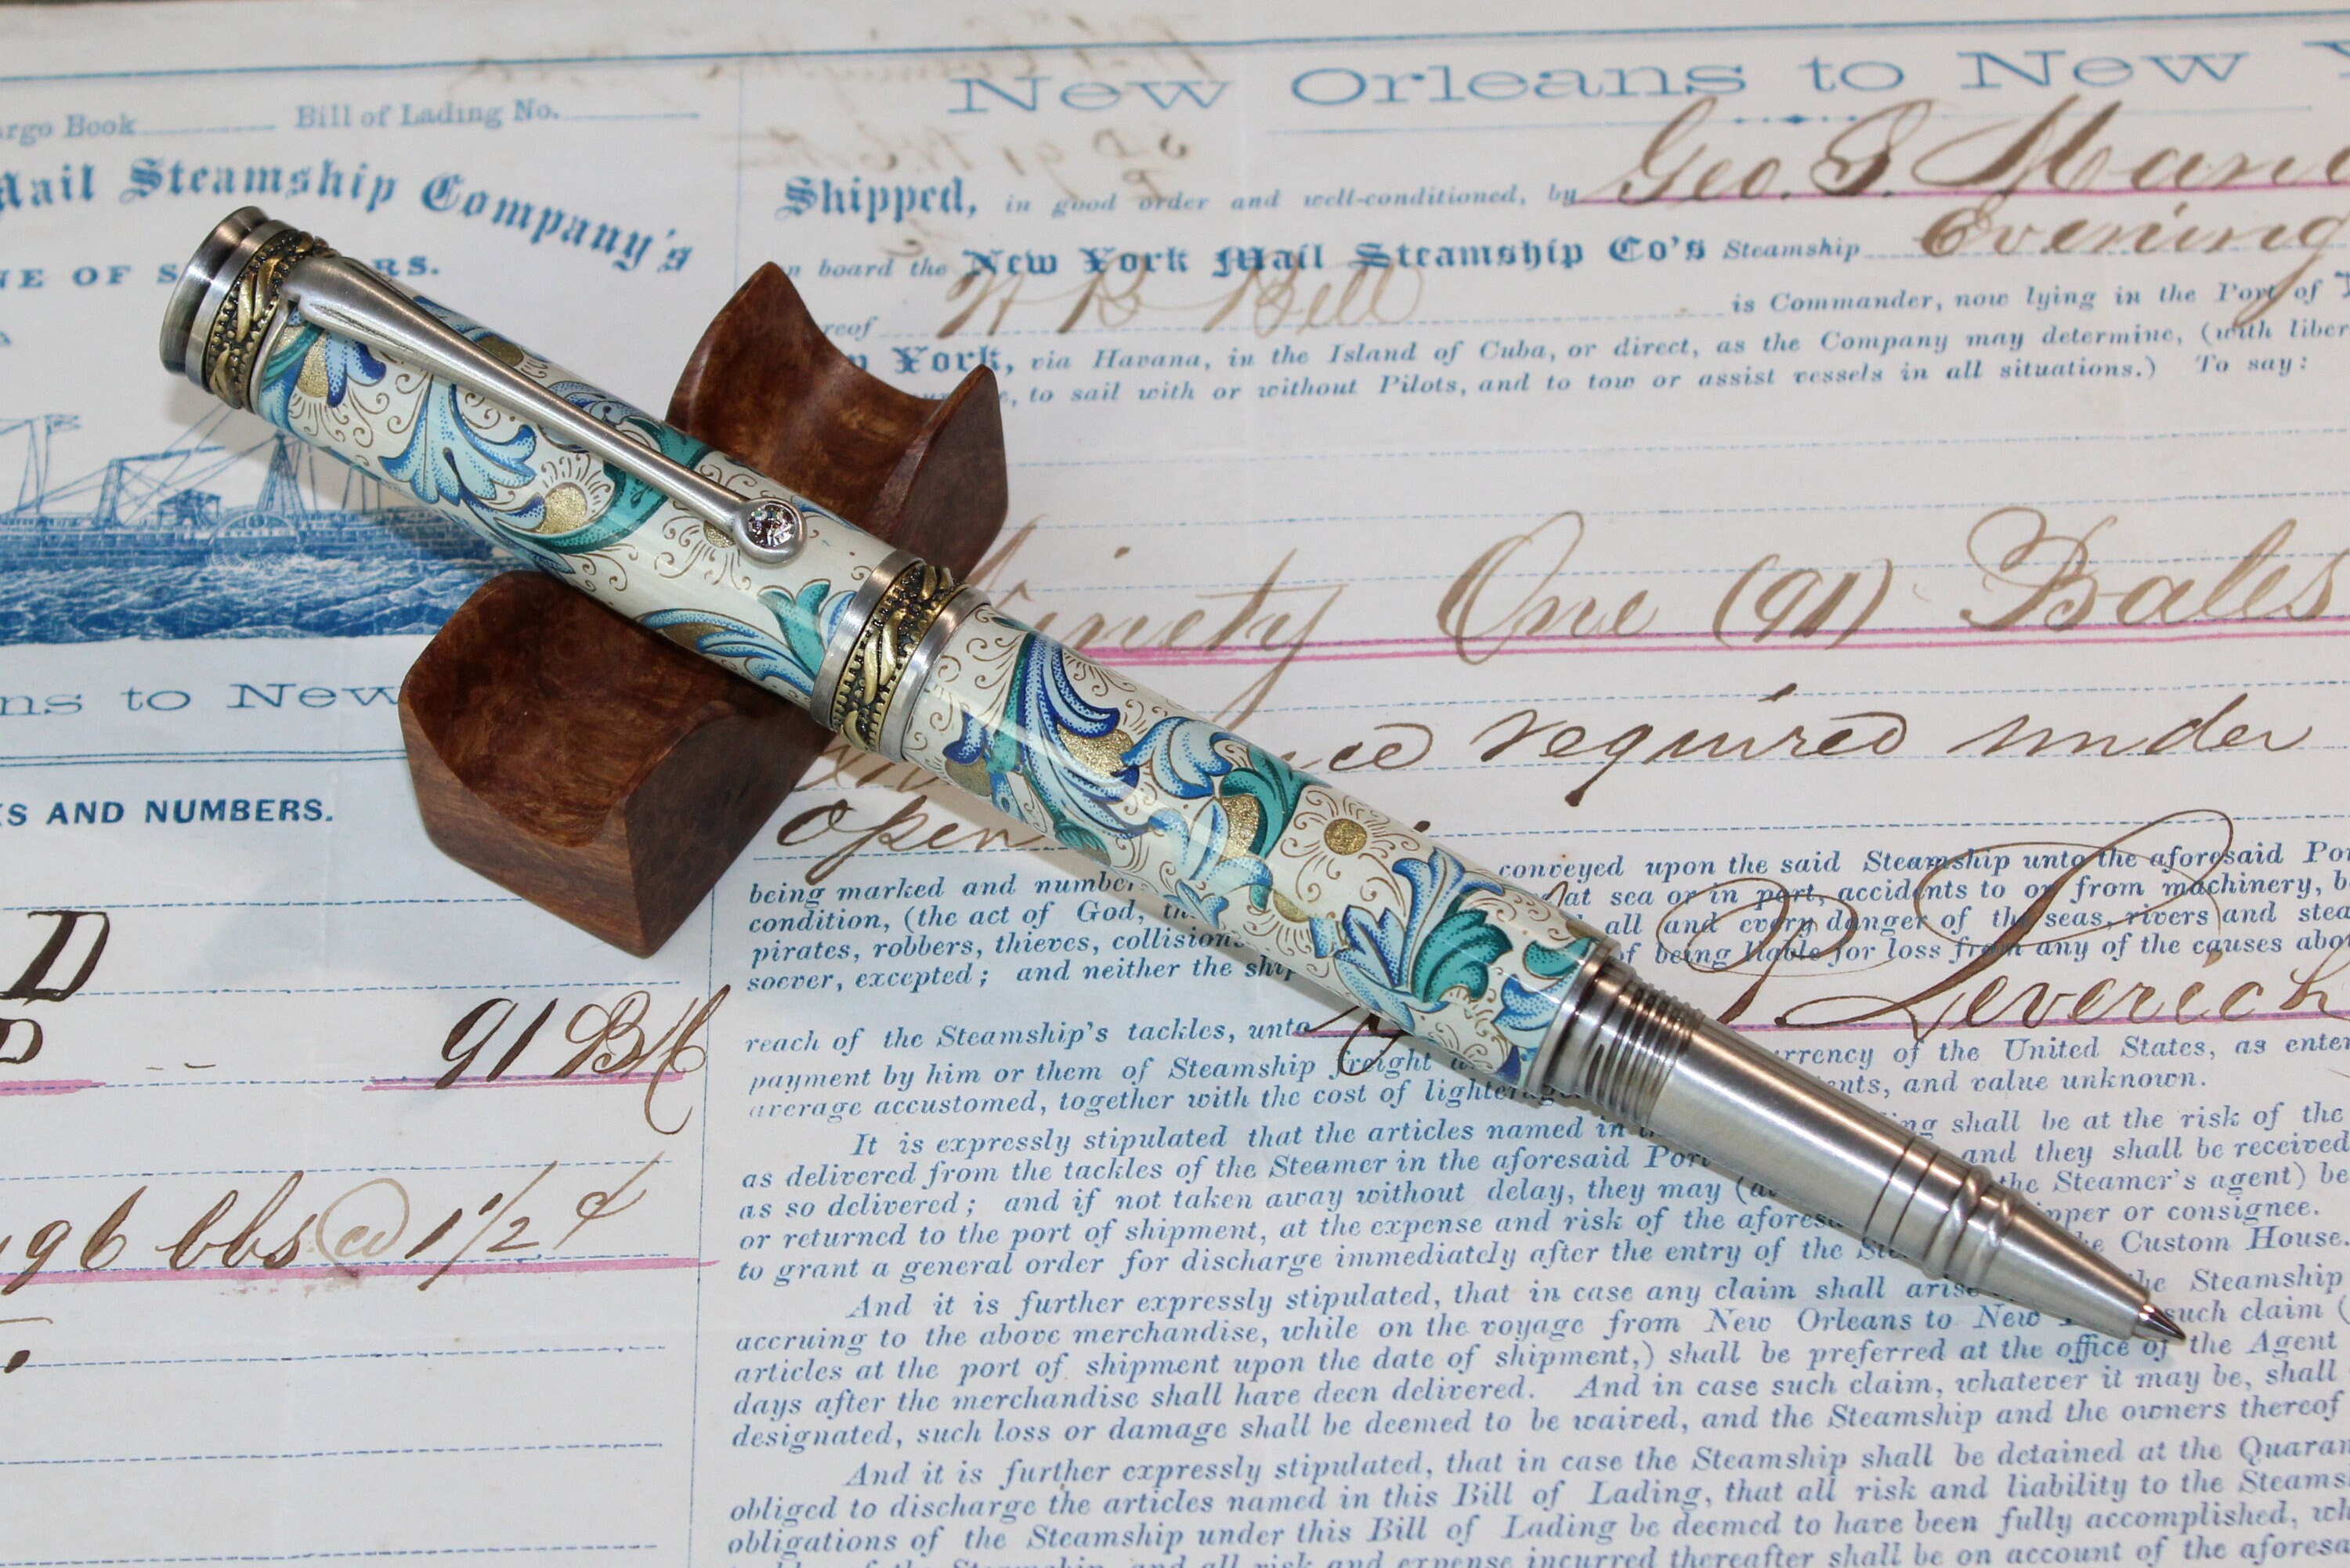 Cargo Book Bill of Lading No.
Mail Steamship Company's
NE OF
RS.
ns to New
S AND NUMBERS.
D
91 Bls
96 lbs @ 1 1/2 ¢
New Orleans to New Y
Shipped, in good order and well-conditioned, by Geo.
on board the New York Mail Steamship Co's Steamship Evening
reof Bell is Commander, now lying in the Port of
York, via Havana, in the Island of Cuba, or direct, as the Company may determine, (with liber
e, to sail with or without Pilots, and to tow or assist vessels in all situations.) To say:
Ninety One (91) Bales
required under
open
conveyed upon the said Steamship unto the aforesaid Por
being marked and number
at sea or in port, accidents to or from machinery, b
condition, (the act of God,
all and every danger of the seas, rivers and stea
pirates, robbers, thieves, collision
of being liable for loss from any of the causes abo
soever, excepted; and neither the ship
reach of the Steamship's tackles, unto Leverich
payment by him or them of Steamship freight
rrency of the United States, as enter
average accustomed, together with the cost of lighterage
ents, and value unknown.
It is expressly stipulated that the articles named in
ing shall be at the risk of the
as delivered from the tackles of the Steamer in the aforesaid Port
and they shall be received
as so delivered; and if not taken away without delay, they may
the Steamer's agent) be
or returned to the port of shipment, at the expense and risk of the afores
pper or consignee.
to grant a general order for discharge immediately after the entry of the Ste
he Custom House.
And it is further expressly stipulated, that in case any claim shall arise
he Steamship
accruing to the above merchandise, while on the voyage from New Orleans to New
such claim (
articles at the port of shipment upon the date of shipment,) shall be preferred at the office of the Agent
days after the merchandise shall have been delivered. And in case such claim, whatever it may be, shall
designated, such loss or damage shall be deemed to be waived, and the Steamship and the owners thereof
And it is further expressly stipulated, that in case the Steamship shall be detained at the Quaran
obliged to discharge the articles named in this Bill of Lading, that all risk and liability to the Steams
obligations of the Steamship under this Bill of Lading be deemed to have been fully accomplished, wh
of the Steamship, and all risk and expense incurred thereafter shall be on account of the aforesa